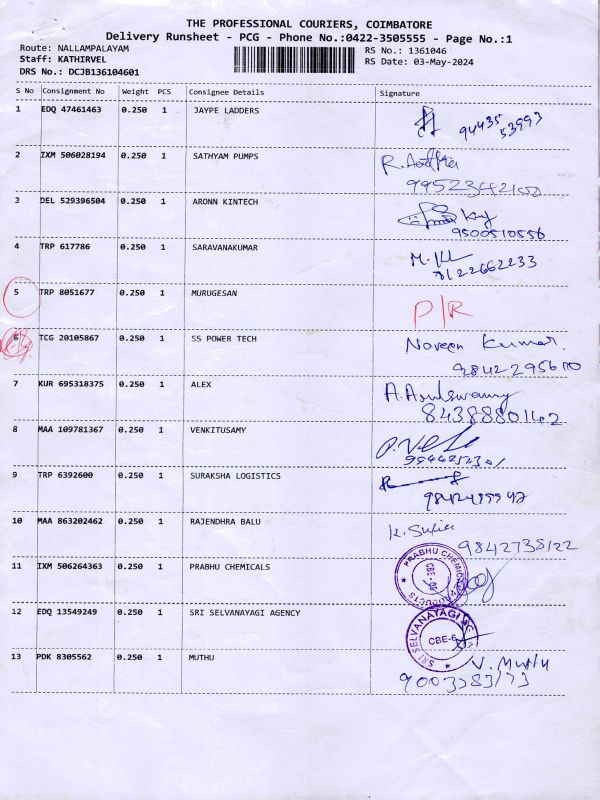 THE PROFESSIONAL COURIERS, COIMBATORE
Delivery Runsheet - PCG - Phone No.:0422-3505555 - Page No.:1
Route: NALLAMPALAYAM
RS No.: 1361046
Staff: KATHIRVEL
RS Date: 03-May-2024
DRS No.: DCJB136104601
S No Consignment No Weight PCS Consignee Details Signature
1 EDQ 47461463 0.250 1 JAYPE LADDERS
94435 53993
2 IXM 506028194 0.250 1 SATHYAM PUMPS
R.
3 DEL 529396504 0.250 1 ARONN KINTECH
9500510556
4 TRP 617786 0.250 1 SARAVANAKUMAR
8122662233
5 TRP 8051677 0.250 1 MURUGESAN P/R
6 TCG 20105867 0.250 1 SS POWER TECH Naveen Kumar.
9842295610
7 KUR 695318375 0.250 1 ALEX A. Arulswamy
8438880142
8 MAA 109781367 0.250 1 VENKITUSAMY
9 TRP 6392600 0.250 1 SURAKSHA LOGISTICS
10 MAA 863202462 0.250 1 RAJENDHRA BALU
9842738122
11 IXM 506264363 0.250 1 PRABHU CHEMICALS
PRABHU CHEMICAL PRODUCTS
12 EDQ 13549249 0.250 1 SRI SELVANAYAGI AGENCY
SRI SELVANAYAGI
CBE-6
13 PDK 8305562 0.250 1 MUTHU V. Muthu
9003783173